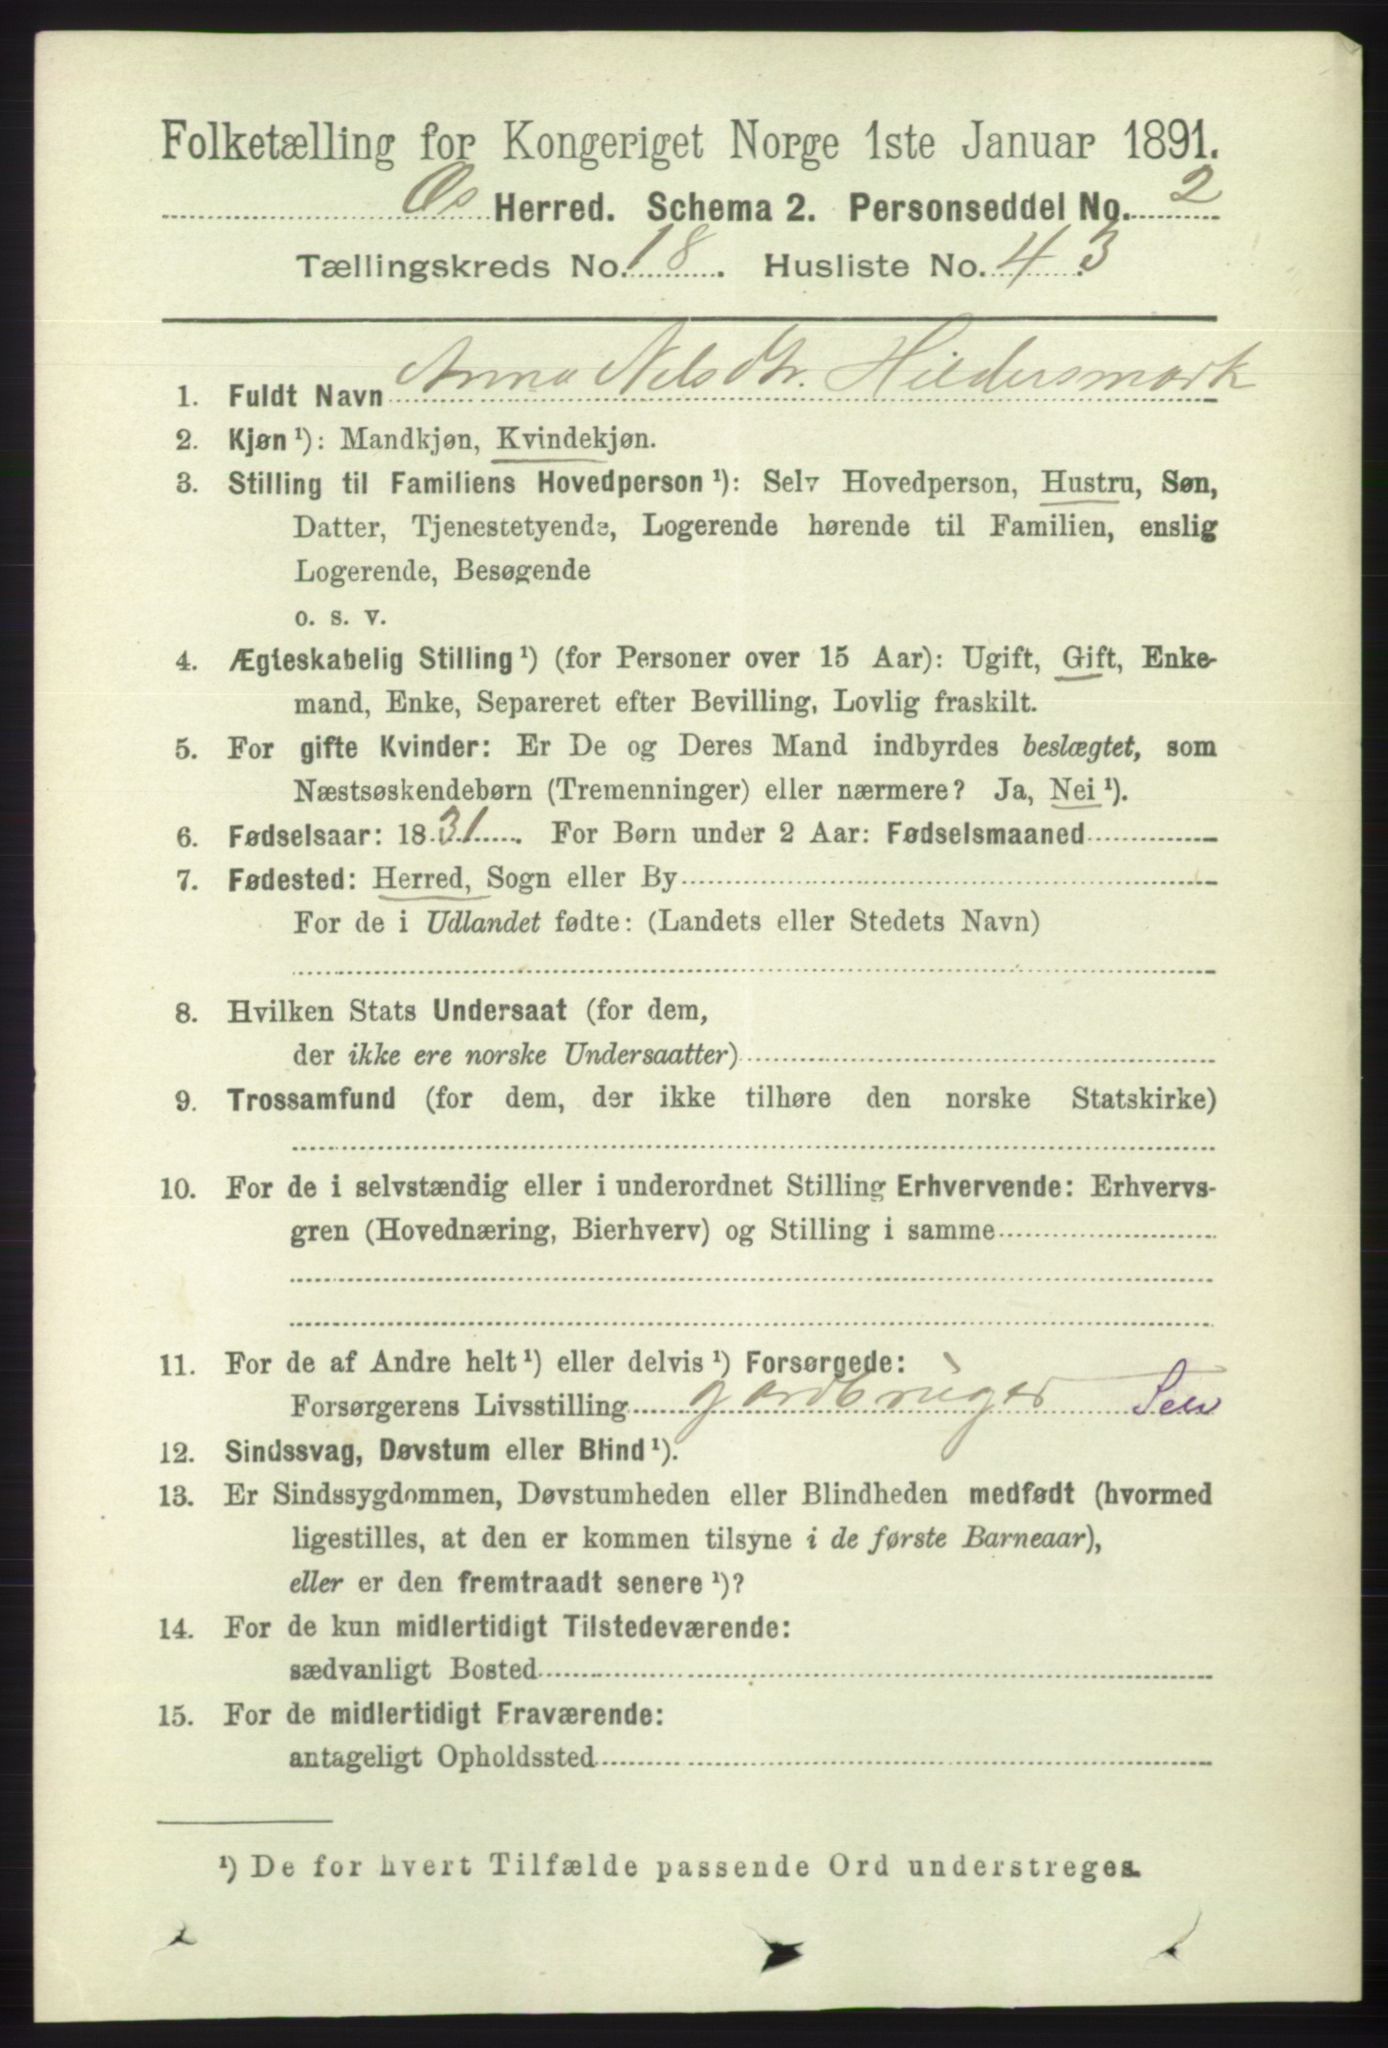 Folketælling for Kongeriget Norge 1ste Januar 1891.
Os Herred. Schema 2. Personseddel No. 2
Tællingskreds No. 18. Husliste No. 43
1. Fuldt Navn Anna Nelsdtr. Hildersmark
2. Kjøn ¹): Mandkjøn, Kvindekjøn.
3. Stilling til Familiens Hovedperson ¹): Selv Hovedperson, Hustru, Søn,
Datter, Tjenestetyende, Logerende hørende til Familien, enslig
Logerende, Besøgende
o. s. v.
4. Ægteskabelig Stilling ¹) (for Personer over 15 Aar): Ugift, Gift, Enke-
mand, Enke, Separeret efter Bevilling, Lovlig fraskilt.
5. For gifte Kvinder: Er De og Deres Mand indbyrdes beslægtet, som
Næstsøskendebørn (Tremenninger) eller nærmere? Ja, Nei ¹).
6. Fødselsaar: 1831. For Børn under 2 Aar: Fødselsmaaned
7. Fødested: Herred, Sogn eller By
For de i Udlandet fødte: (Landets eller Stedets Navn)
8. Hvilken Stats Undersaat (for dem,
der ikke ere norske Undersaatter)
9. Trossamfund (for dem, der ikke tilhøre den norske Statskirke)
10. For de i selvstændig eller i underordnet Stilling Erhvervende: Erhvervs-
gren (Hovednæring, Bierhverv) og Stilling i samme
11. For de af Andre helt ¹) eller delvis ¹) Forsørgede:
Forsørgerens Livsstilling gardbrüger Selv
12. Sindssvag, Døvstum eller Blind ¹).
13. Er Sindssygdommen, Døvstumheden eller Blindheden medfødt (hvormed
ligestilles, at den er kommen tilsyne i de første Barneaar),
eller er den fremtraadt senere ¹)?
14. For de kun midlertidigt Tilstedeværende:
sædvanligt Bosted
15. For de midlertidigt Fraværende:
antageligt Opholdssted
¹) De for hvert Tilfælde passende Ord understreges.